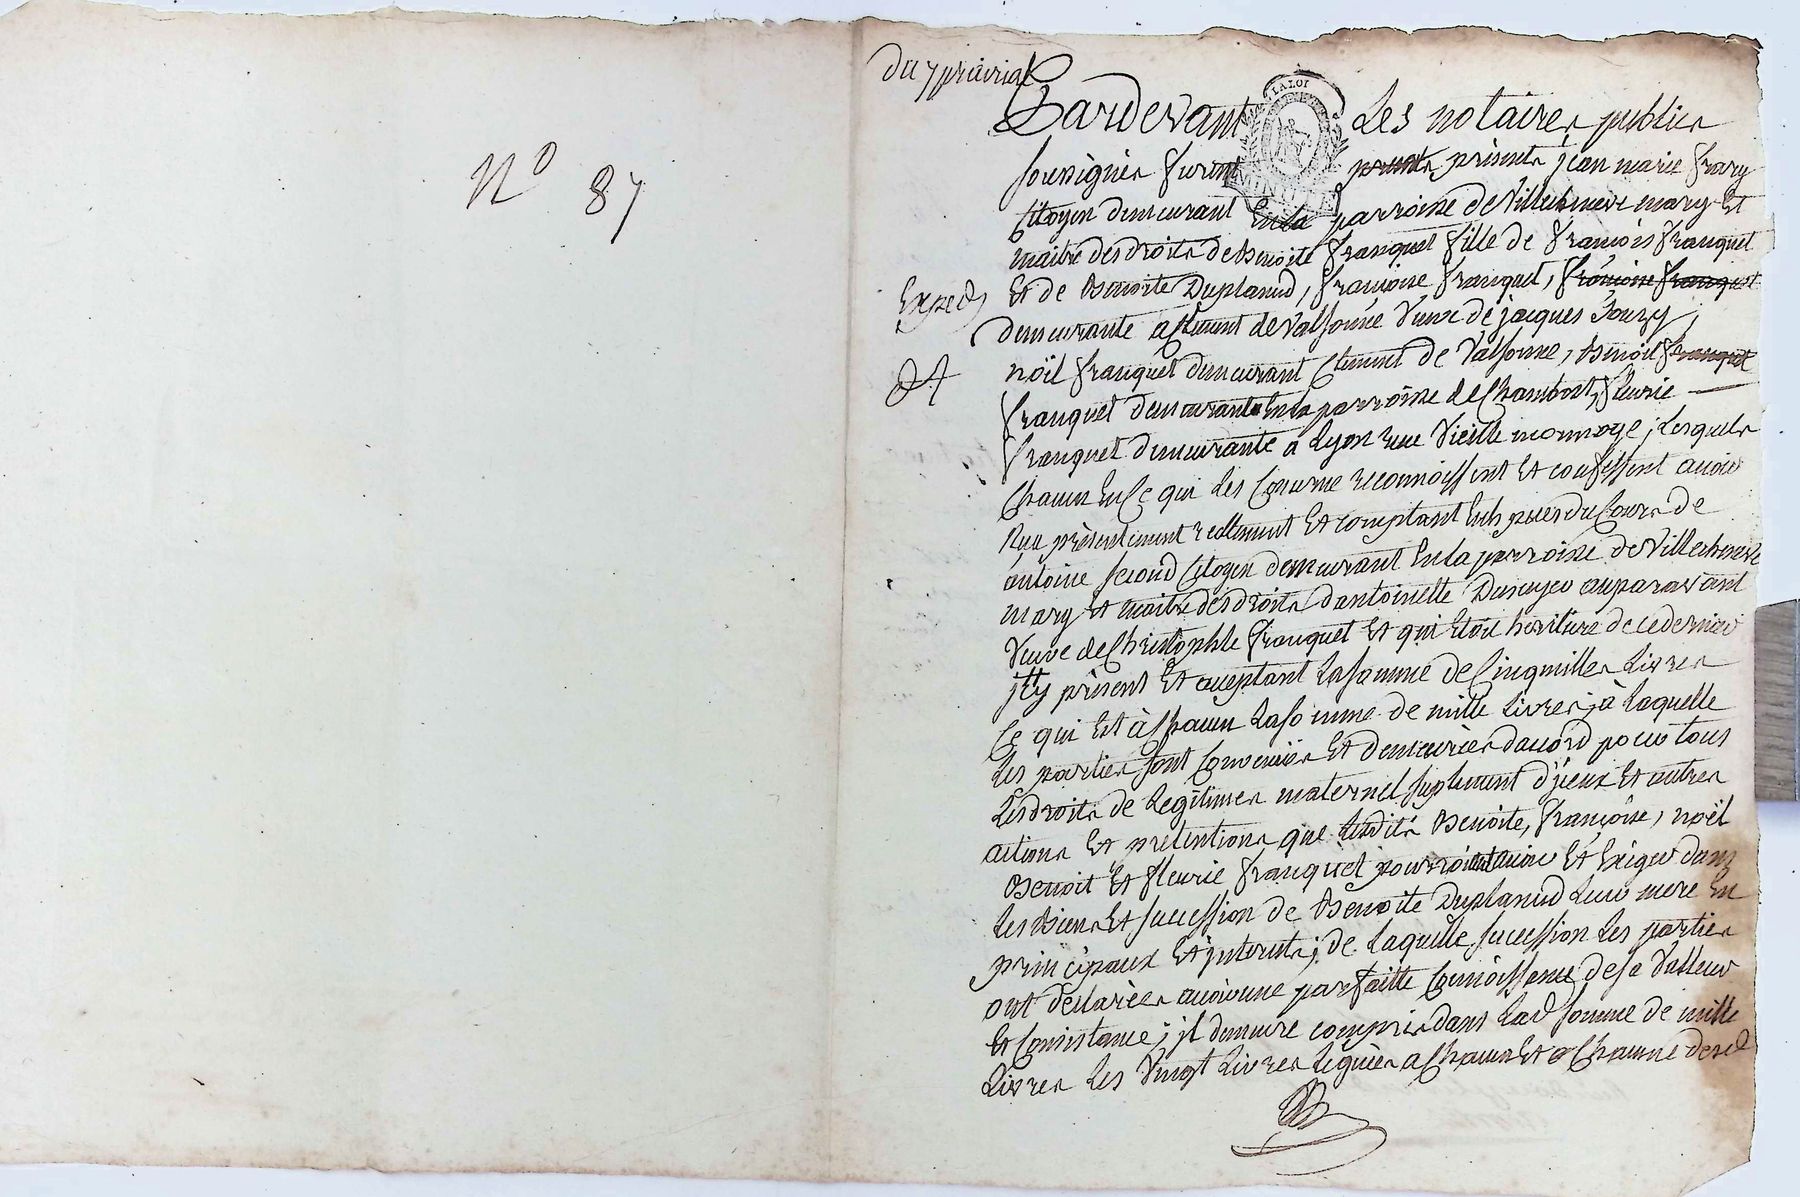 N° 87
du 7 prairial
Pardevant Les notaires publics
soussignés furent presents jean marie frary
Citoyen demeurant En la parroisse de Villechneve mary Et
maitre des droits de Benoite franquet fille de francois franquet
Exped
Et de Benoite Duplanud, francoise franquet, francoise franquet
demeurante a Clement de Valsonne Veuve de jacques
noël franquet demeurant Clement de Valsonne, Benoit franquet
franquet demeurant En la parroisse de Chambost, fleurie
franquet demeurante a Lyon rue Vieille monnoye, Lesquels
Chacun En Ce qui Les Concerne reconnoissent Et confessent avoir
Reçu présentement reellement Et comptant En espèces du Cours de
antoine second Citoyen demeurant En la parroisse de Villecheneve
mary Et maitre des droits d'antoinette auparavant
Veuve de Christophle franquet Et qui Etoit heritiere de ce dernier
jcy présent Et acceptant La somme de Cinq milles Livres
Ce qui Est à Chacun La somme de mille Livres, à Laquelle
Les parties sont Convenües Et demeurées d'accord pour tous
Les droits de Legitimes maternel suplement d'jceux Et autres
actions Et pretentions que Lesdits Benoite, françoise, noël
Benoit Et fleurie franquet pourroient avoir Et Exiger dans
Les Biens Et succession de Benoite Duplanud Leur mere En
principaux Et jnterets; de Laquelle succession Les parties
ont déclarées avoir une parfaitte Connoissance de sa Valleur
Et Consistance; jl demeure compris dans Lad somme de mille
Livres Les Vingt Livres Leguées a Chacun Et a Chacune desd